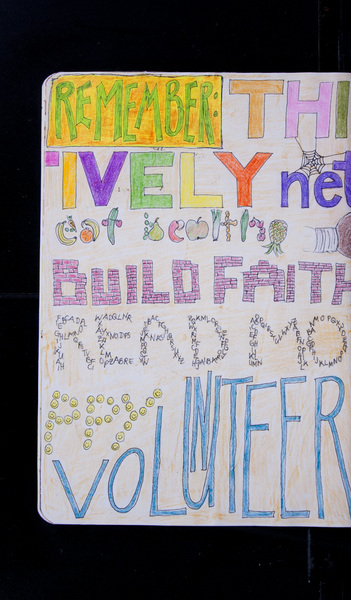 REMEMBER: THI
IVELY net
eat healthy
BUILD FAITH
READ MO
PPY
VOLUNTEER